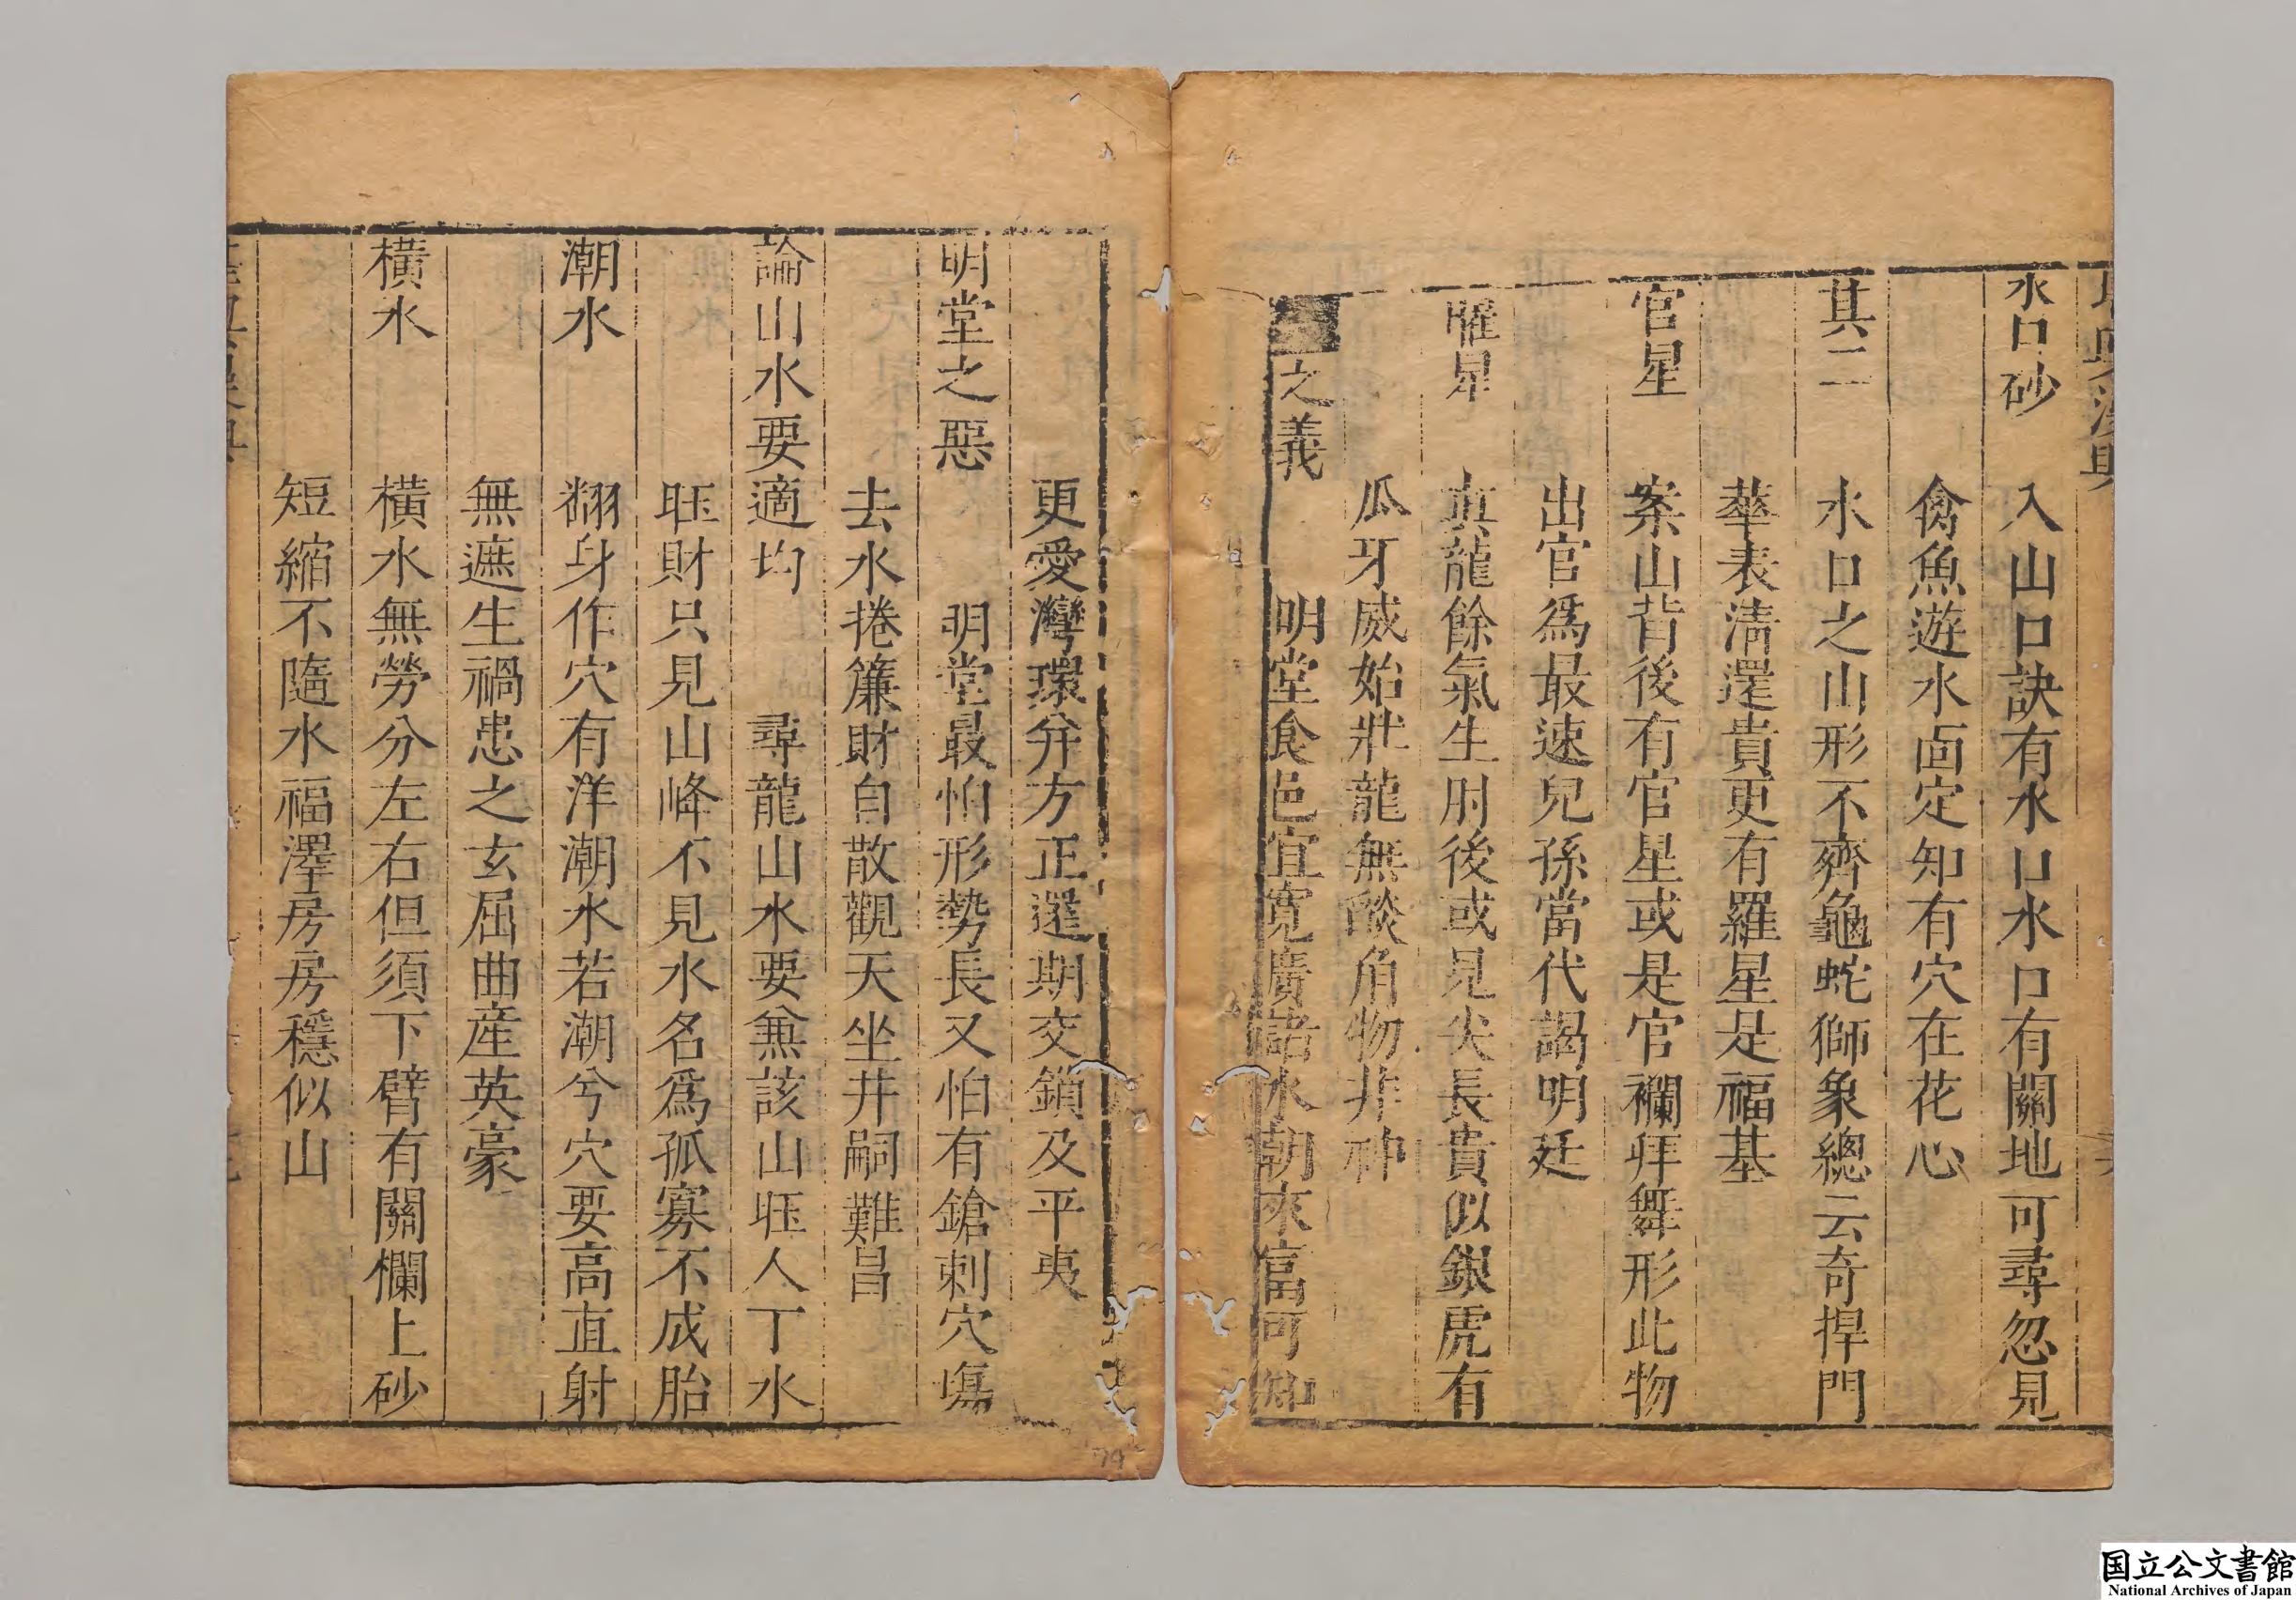 水口砂　入山口訣有水口水口有關地可尋忽見
禽魚遊水面定知有穴在花心
其二　水口之山形不齊龜蛇獅象總云奇捍門
華表清還貴更有羅星是福基
官星　案山背後有官星或是官襴拜舞形此物
出官爲最速兒孫當代謁明廷
曜星　真龍餘氣生肘後或見尖長貴似銀虎有
瓜牙威始壯龍無燄角物非神
之義　明堂食邑宜寬廣諸水朝來富可知
更愛灣環并方正還期交鎖及平夷
明堂之惡　明堂最怕形勢長又怕有鎗刺穴塲
去水捲簾財自散觀天坐井嗣難昌
論山水要適均　尋龍山水要兼該山旺人丁水
旺財只見山峰不見水名爲孤寡不成胎
潮水　翻身作穴有洋潮水若潮兮穴要高直射
無遮生禍患之玄屈曲産英豪
橫水　橫水無勞分左右但須下臂有關欄上砂
短縮不隨水福澤房房穩似山
79
国立公文書館
National Archives of Japan